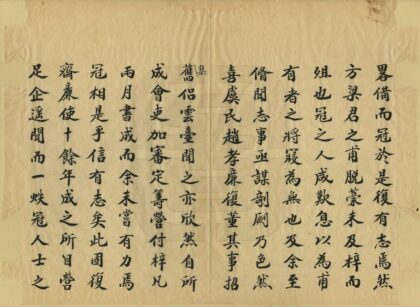 畧備而冠於是復有志焉然
方梁君之甫脫藁未及梓而
殂也冠之人咸歎息以為甫
有者之將寢為無也及余至
脩聞志事亟謀剞劂乃色然
喜虞民趙孝廉復董其事招
集舊侶雲臺聞之亦欣然自所
成會更加審定籌營付梓凡
兩月書成而余未嘗有力焉
冠相是乎信有志矣此固復
齋廉使十餘年成之所目營
足企遥聞而一冠人士之